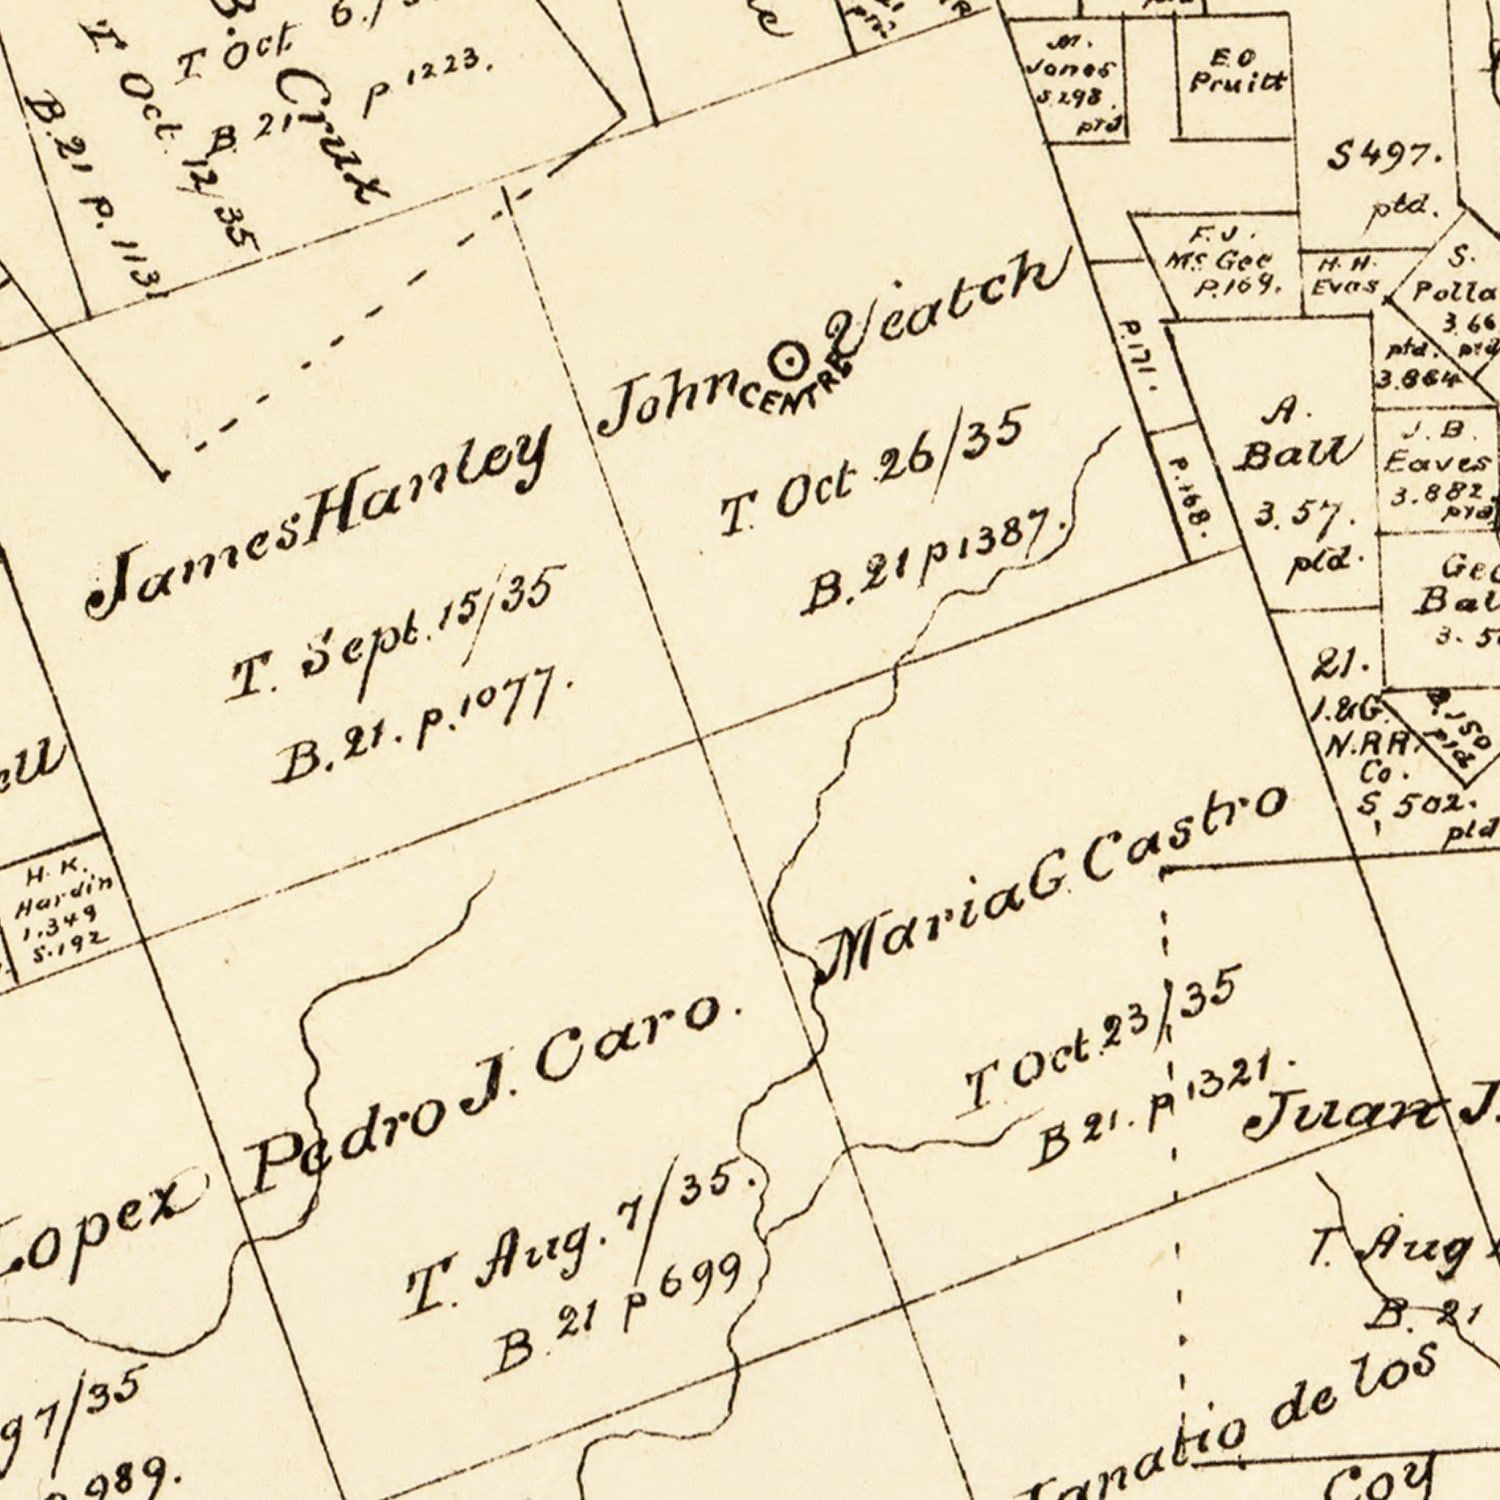 T Oct
T Oct 12/35
B. 21 p. 1131
B 21 p 1223.
Crux
M.
Jones
S.298.
ptd
E O
Pruitt
S 497.
ptd.
F. J.
Mc Gee
P.169.
H. H.
Evas
S.
Polla
3.66
ptd.
ptd
3.864
P.171.
P.168.
A.
Ball
3.57.
ptd.
J. B.
Eaves
3.882.
ptd
Geo
Bal
3.5
21.
I.&G.
N.RR.
Co.
S 502.
ptd
P.150
ptd
John Veatch
CENTRE
T. Oct 26/35
B. 21 p 1387.
James Hanley
T. Sept. 15/35
B. 21. p. 1077.
ell
H. K.
Hardin
1.349
S.192
Maria G. Castro
T Oct. 23/35
B 21. p 1321.
Pedro J. Caro.
T. Aug. 7/35.
B. 21 p 699
Lopex
g 7/35
989.
Juan J.
T. Aug
B. 21
Ignatio de los
Coy